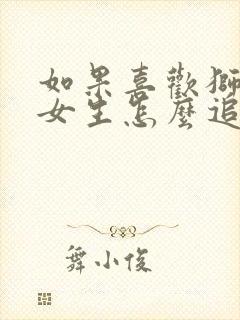 如果喜歡獅
女生怎麼追
舞小俊